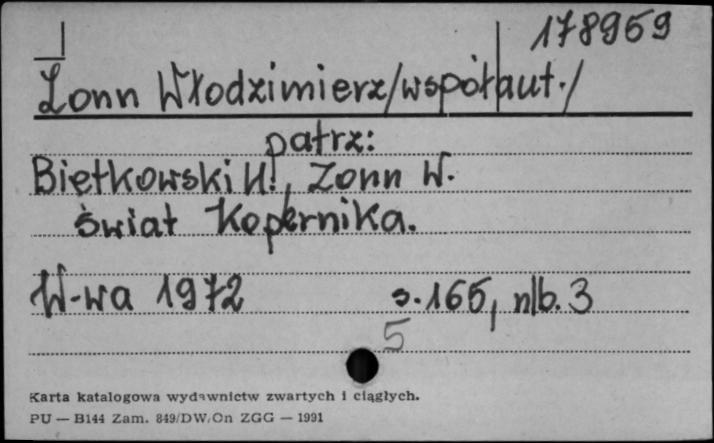 178959
Zonn Włodzimierz/współaut./
patrz:
Biełkowski H., Zonn W.
Świat Kopernika.
W-wa 1972 s.165, nlb. 3
5
Karta katalogowa wydawnictw zwartych i ciągłych.
PU — B144 Zam. 849/DW/On ZGG — 1991